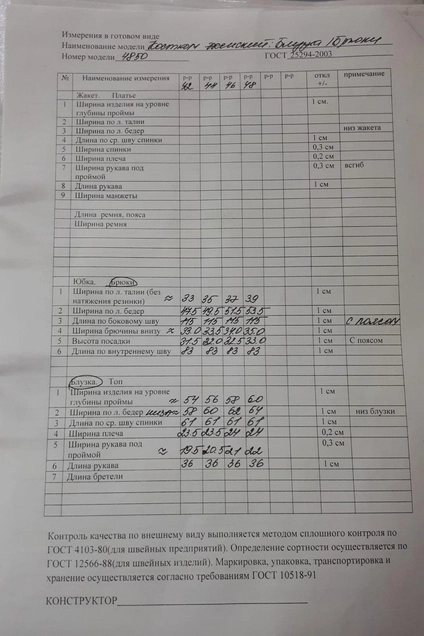 Измерения в готовом виде
Наименование модели Костюм женский: блузка/брюки
Номер модели 4850 ГОСТ 25294-2003
№ Наименование измерения р-р 42 р-р 44 р-р 46 р-р 48 р-р р-р откл +/- примечание
Жакет. Платье
1 Ширина изделия на уровне глубины проймы 1 см.
2 Ширина по л. талии
3 Ширина по л. бедер низ жакета
4 Длина по ср. шву спинки 1 см
5 Ширина спинки 0,3 см
6 Ширина плеча 0,2 см
7 Ширина рукава под проймой 0,3 см всгиб
8 Длина рукава 1 см
9 Ширина манжеты
Длина ремня, пояса
Ширина ремня
Юбка. Брюки
1 Ширина по л. талии (без натяжения резинки) ≈ 33 35 37 39 1 см
2 Ширина по л. бедер 47.5 49.5 51.5 53.5 1 см
3 Длина по боковому шву 115 115 115 115 1 см с поясом
4 Ширина брючины внизу ≈ 33.0 33.5 34.0 35.0 1 см
5 Высота посадки 31.5 32.0 32.5 33.0 1 см С поясом
6 Длина по внутреннему шву 83 83 83 83 1 см
Блузка. Топ
1 Ширина изделия на уровне глубины проймы ≈ 54 56 58 60 1 см
2 Ширина по л. бедер низ ≈ 58 60 62 64 1 см низ блузки
3 Длина по ср. шву спинки 61 61 61 61 1 см
4 Ширина плеча 23.5 23.5 24 24 0,2 см
5 Ширина рукава под проймой ≈ 19.5 20.5 21 22 0,3 см
6 Длина рукава 36 36 36 36 1 см
7 Длина бретели
Контроль качества по внешнему виду выполняется методом сплошного контроля по
ГОСТ 4103-80(для швейных предприятий). Определение сортности осуществляется по
ГОСТ 12566-88(для швейных изделий). Маркировка, упаковка, транспортировка и
хранение осуществляется согласно требованиям ГОСТ 10518-91
КОНСТРУКТОР